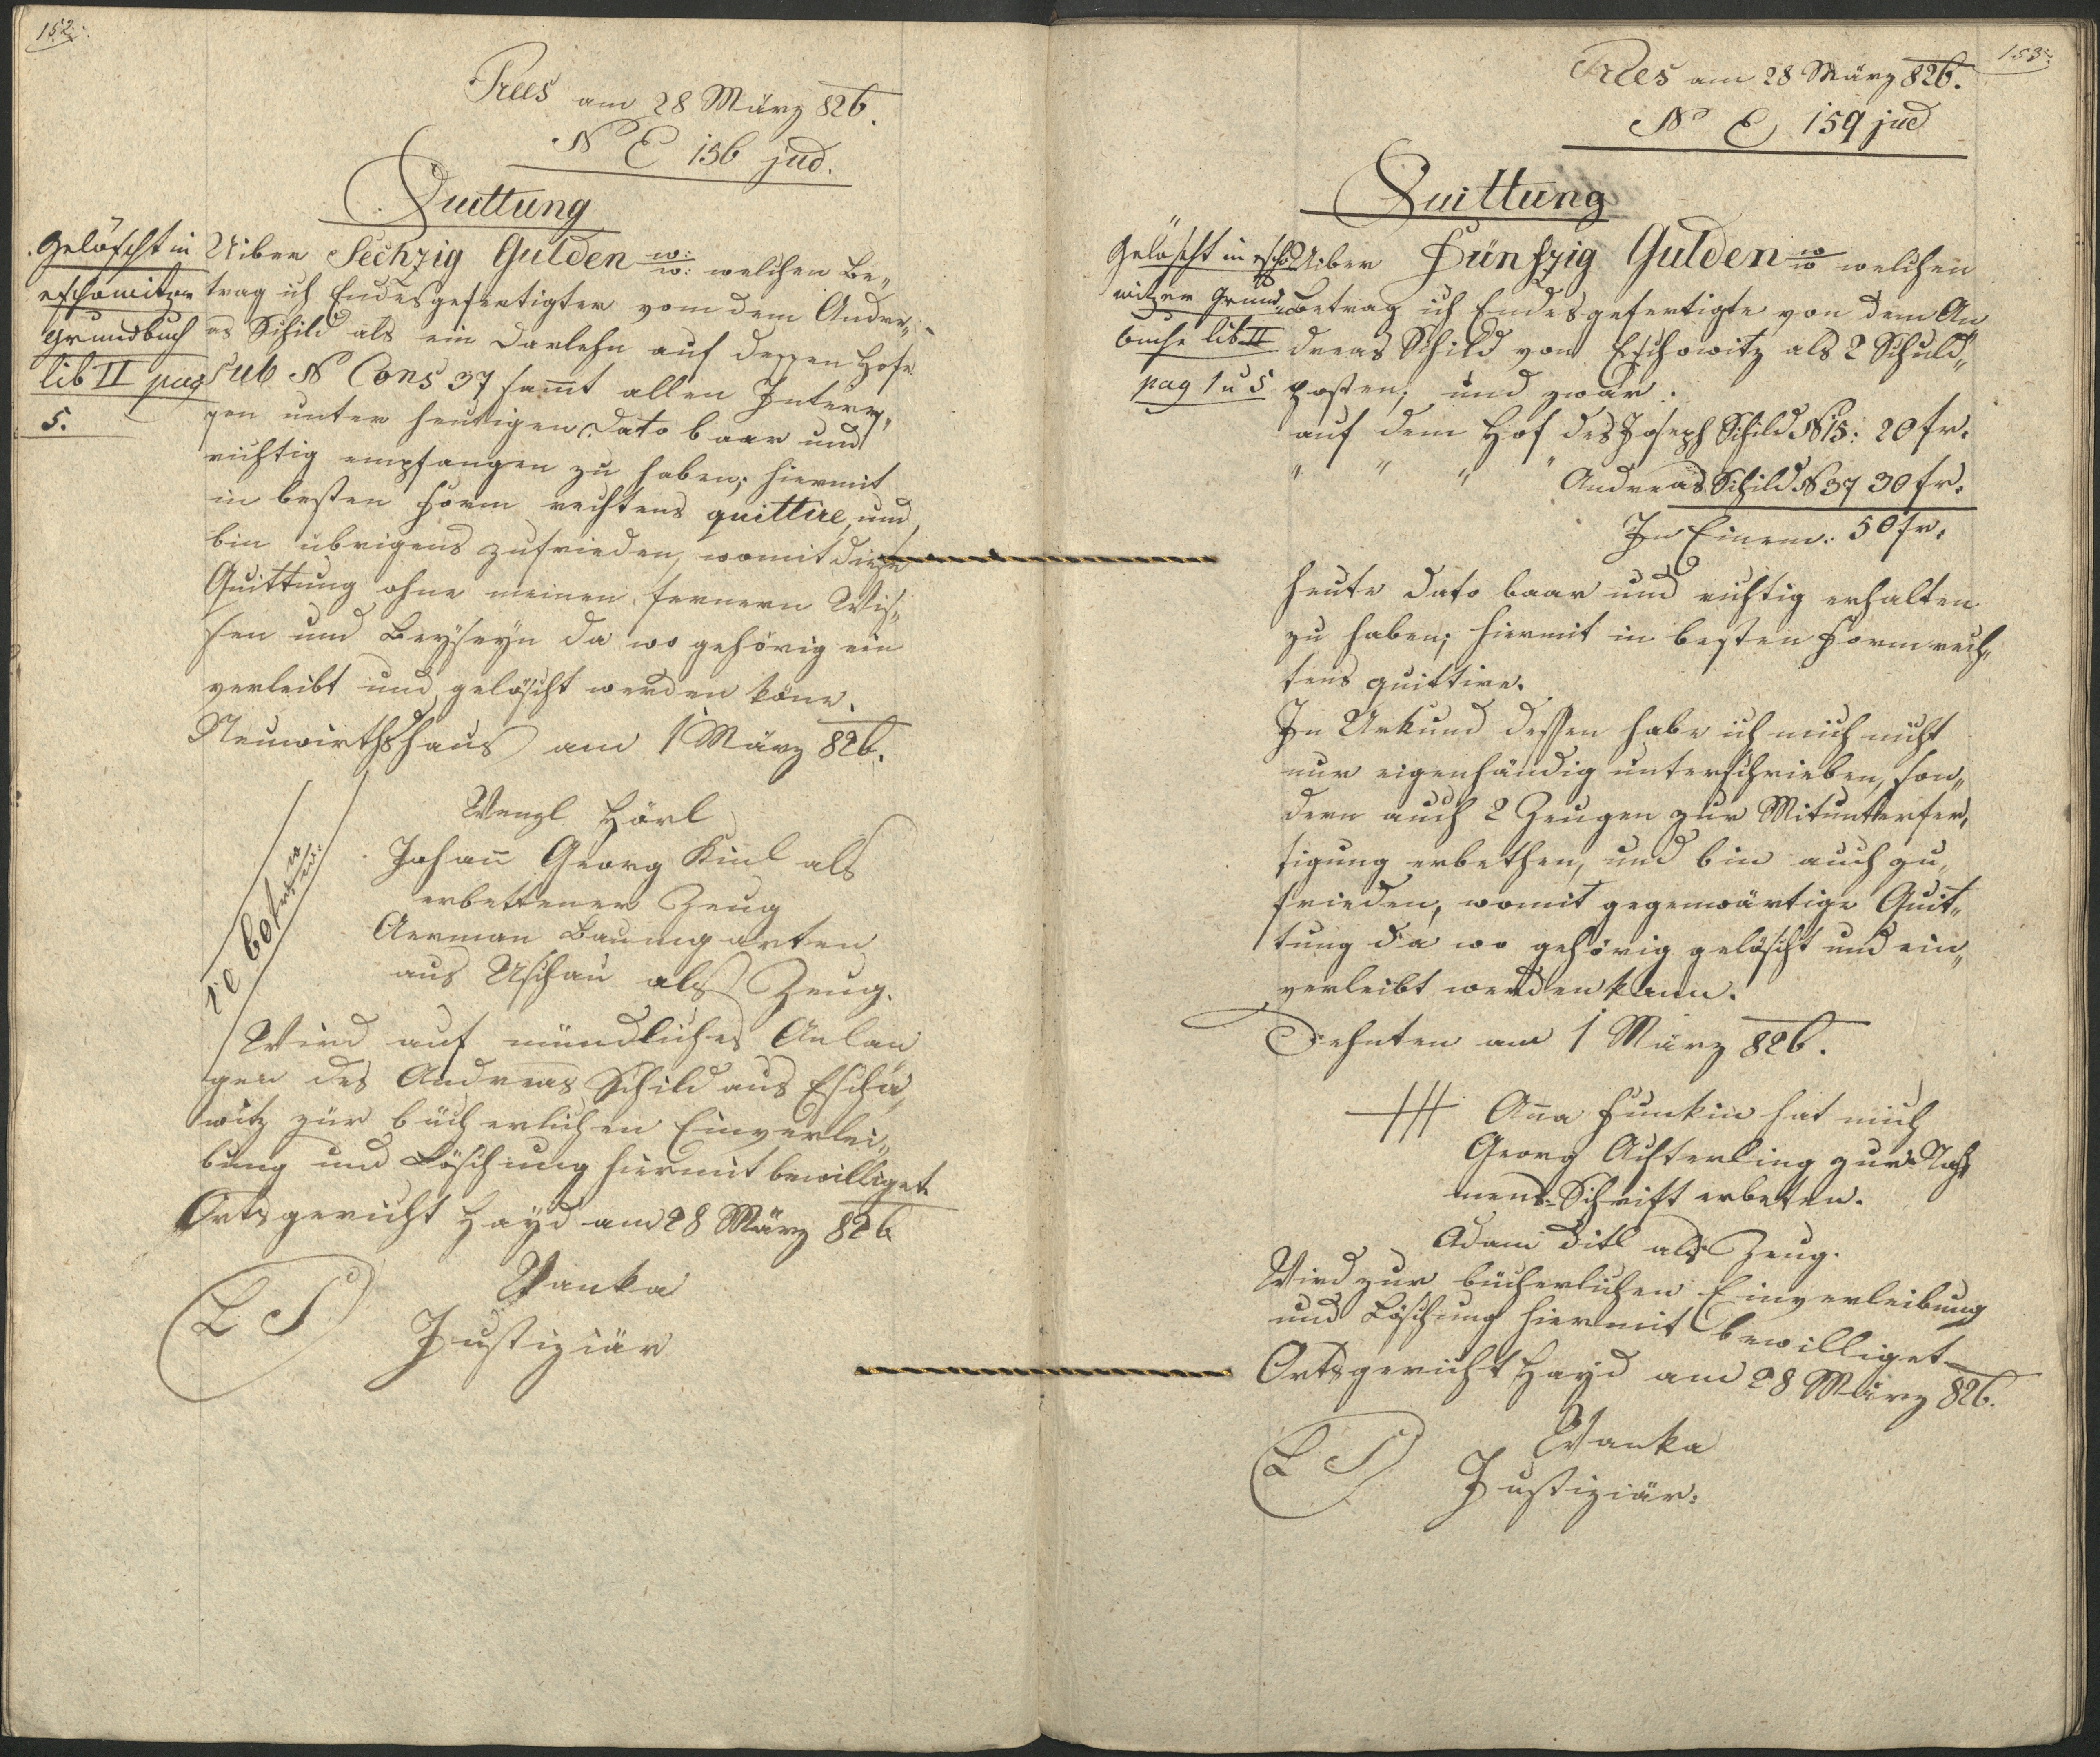 152.
Prees am 28 März 826.
No E 156 jud.
Quittung
Gelöscht in
eschowitzer
Grundbuch
lib II pag
5.
Uiber Sechzig Gulden w:/w: welchen Be„
trag ich Endesgefertigter vom dem Andre„
as Schild als ein Darlehn auf dessen Hofe
sub No Cons 37 sam̅t allen Interes„
sen unter heutigen Dato baar und
richtig empfangen zu haben; hiermit
in besten Form rechtens quittire, und
bin übrigens zufrieden, womit diese
Quittung ohne meinen fernern Wis„
sen und Beyseyn da wo gehörig ein
verleibt und gelöscht werden kön̅e.
Neuwirthshaus am 1 März 826.
Wenzl Hörl
Johan̅ Georg Kinl als
erbettener Zeug
Herman Baumgarten
aus Uschau als Zeug.
60 fr w/w:
Wird auf mündliches Anlan
gen des Andreas Schild aus Escho„
witz zur bücherlichen Einverlei„
bung und Löschung hiermit bewilliget.
Ortsgericht Hayd am 28 März 826
L S
Wanka
Justiziär
153.
Prees am 28 März 826.
No E 159 jud
Quittung
Gelöscht in escho
witzer Grund„
buche lib II
pag 1 u 5
Uiber Fünfzig Gulden w/w welchen
Betrag ich Endesgefertigte von dem An
dreas Schild von Eschowitz als 2 Schuld„
posten; und zwar:
auf dem Hof des Joseph Schild No 15: 20 fr:
" " " " Andreas Schild No 37 30 fr:
In Einem: 50 fr:
heute Dato baar und richtig erhalten
zu haben; hiermit in besten Form rech„
tens quittire.
In Urkund dessen habe ich mich nicht
nur eigenhändig unterschrieben, son„
dern auch 2 Zeugen zur Mitunterfer„
tigung erbethen, und bin auch zu„
frieden, womit gegenwärtige Quit„
tung da wo gehörig gelöscht und ein„
verleibt werden kann.
Dehnten am 1 März 826.
+++ An̅a Funkin hat mich
Georg Achterling zur Nah
mens-Schrift erbeten.
Adam Ditl als Zeug.
Wird zur bücherlichen Einverleibung
und Löschung hiermit bewilliget
Ortsgericht Hayd am 28 März 826.
L S
Wanka
Justiziär: